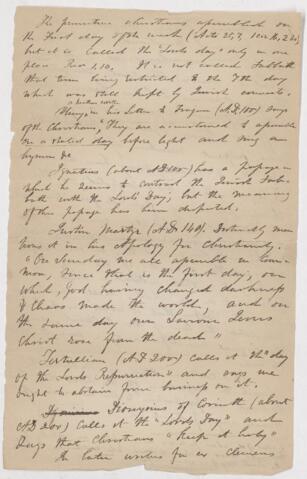 The primitive christians assembled on
the first day of the week (Acts 20,7, 1 Cor 16, 2 &c)
but it is called the Lords day only in one
place Rev 1, 10. It is not called Sabbath
that term being restricted to the 7th day
which was still kept by Jewish converts.
a heathen writer
Pliny in his Letter to Trajan (A.D. 100) says
of the Christians, "They are accustomed to assemble
on a stated day before light and sing an
hymn &c
Ignatius (about AD 100) has a passage in
which he seems to contrast the Jewish Sab-
bath with the Lord's Day, but the meaning
of this passage has been disputed.
Justin Martyr (A.D. 140). Distinctly men
tions it in his Apology for Christianity.
"On Sunday we all assemble in com-
mon, since that is the first day, on
which, God having changed darkness
& Chaos made the world, and on
the same day our Saviour Jesus
Christ rose from the dead"
Tertullian (A.D 200) calls it "the day
of the Lords Resurrection" and says we
ought to abstain from business on it.
Dionysius of Corinth (about
A.D 200) calls it the "Lords Day" and
says that Christians "Keep it holy"
writers for ex Clemens